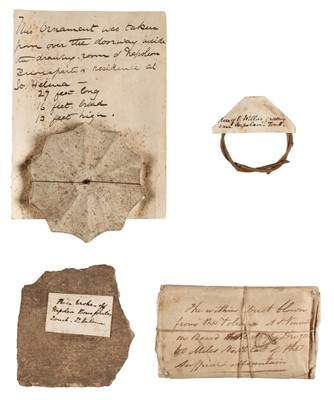 This Ornament was taken
from over the doorway inside
the drawing-room of Napoleon
Buonaparte's residence at
St. Helena —
27 feet long
16 feet broad
13 feet high.
Willow
Napoleon's Tomb.
Piece broken off
Napoleon Bonaparte's
Tomb. St Helena
The within Dust blown
from the
on Board
60 Miles North East of the
Mountain